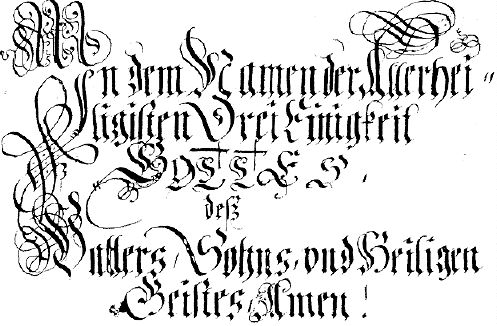 In dem Namen der Allerhei=
ligisten Drei Einigkeit
GOTTES,
deß
Vatters, Sohns, und Heiligen
Geistes, Amen!